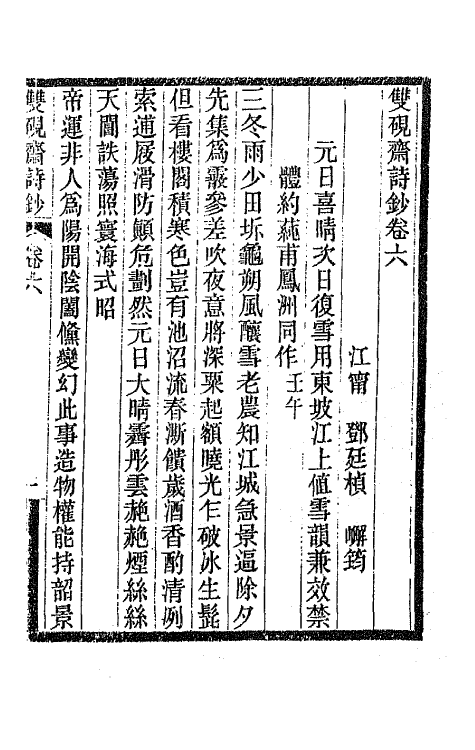 雙硯齋詩鈔卷六
江甯　鄧廷楨　嶰筠
元日喜晴次日復雪用東坡江上值雪韻兼效禁
體約蒓甫鳳洲同作壬午
三冬雨少田坼龜朔風釀雪老農知江城急景逼除夕
先集爲霰參差吹夜意將深粟起額曉光乍破冰生髭
但看樓閣積寒色豈有池沼流春澌饋歲酒香酌清冽
索逋屐滑防顛危劃然元日大晴霽彤雲赩赩煙絲絲
天閶詄蕩照寰海式昭
帝運非人爲陽開陰闔儵變幻此事造物權能持韶景
雙硯齋詩鈔　卷六　一